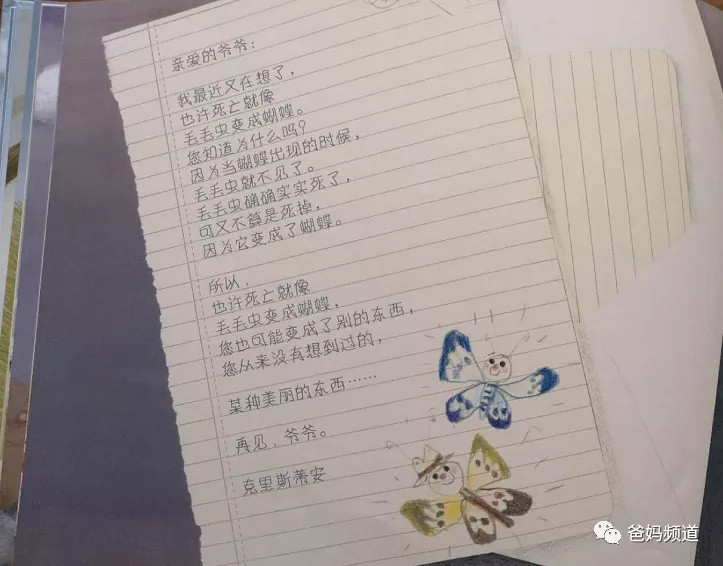 亲爱的爷爷：
我最近又在想了，
也许死亡就像
毛毛虫变成蝴蝶。
您知道为什么吗？
因为当蝴蝶出现的时候，
毛毛虫就不见了。
毛毛虫确确实实死了，
可又不算是死掉，
因为它变成了蝴蝶。
所以，
也许死亡就像
毛毛虫变成蝴蝶，
您也可能变成了别的东西，
您从来没有想到过的，
某种美丽的东西……
再见，爷爷。
克里斯蒂安
爸妈频道